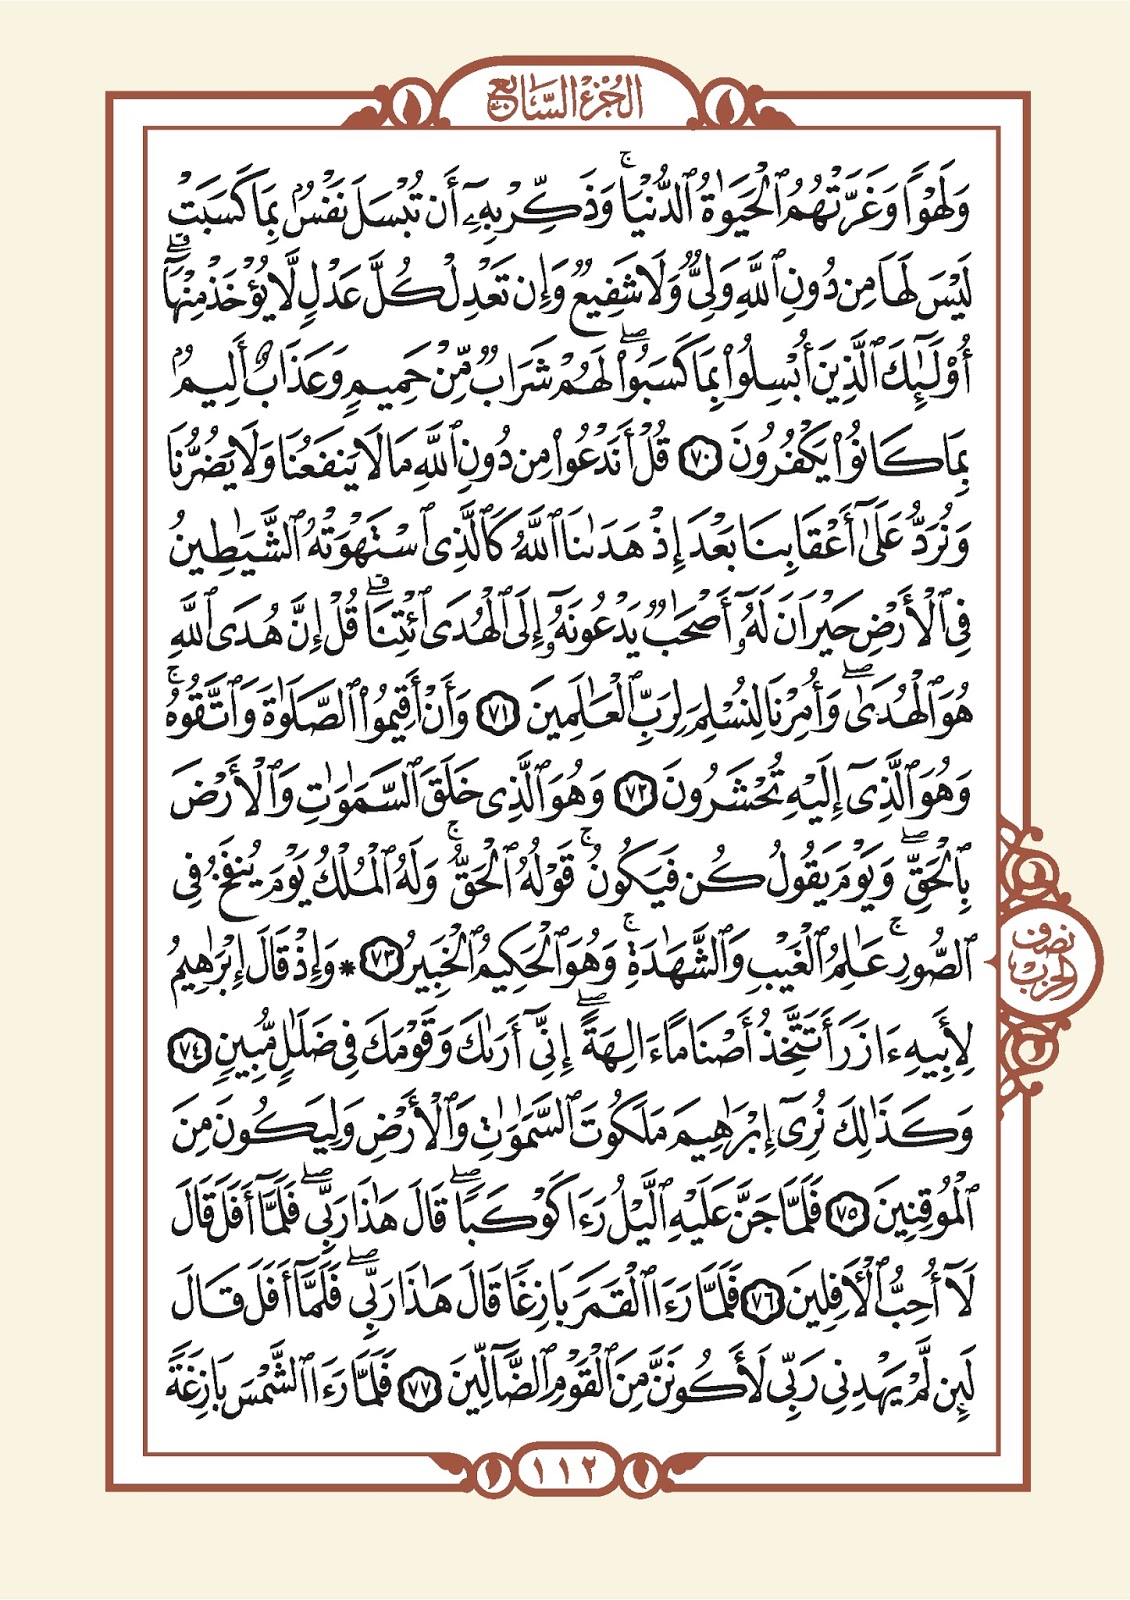 الجزء السابع
وَلَهْوًا وَغَرَّتْهُمُ ٱلْحَيَوٰةُ ٱلدُّنْيَاۚ وَذَكِّرْ بِهِۦٓ أَن تُبْسَلَ نَفْسٌۢ بِمَا كَسَبَتْ
لَيْسَ لَهَا مِن دُونِ ٱللَّهِ وَلِىٌّ وَلَا شَفِيعٌ وَإِن تَعْدِلْ كُلَّ عَدْلٍ لَّا يُؤْخَذْ مِنْهَآۗ
أُو۟لَـٰٓئِكَ ٱلَّذِينَ أُبْسِلُوا۟ بِمَا كَسَبُوا۟ۖ لَهُمْ شَرَابٌ مِّنْ حَمِيمٍ وَعَذَابٌ أَلِيمٌۢ
بِمَا كَانُوا۟ يَكْفُرُونَ ٧٠ قُلْ أَنَدْعُوا۟ مِن دُونِ ٱللَّهِ مَا لَا يَنفَعُنَا وَلَا يَضُرُّنَا
وَنُرَدُّ عَلَىٰٓ أَعْقَابِنَا بَعْدَ إِذْ هَدَىٰنَا ٱللَّهُ كَٱلَّذِى ٱسْتَهْوَتْهُ ٱلشَّيَـٰطِينُ
فِى ٱلْأَرْضِ حَيْرَانَ لَهُۥٓ أَصْحَـٰبٌ يَدْعُونَهُۥٓ إِلَى ٱلْهُدَى ٱئْتِنَاۗ قُلْ إِنَّ هُدَى ٱللَّهِ
هُوَ ٱلْهُدَىٰۖ وَأُمِرْنَا لِنُسْلِمَ لِرَبِّ ٱلْعَـٰلَمِينَ ٧١ وَأَنْ أَقِيمُوا۟ ٱلصَّلَوٰةَ وَٱتَّقُوهُۚ
وَهُوَ ٱلَّذِىٓ إِلَيْهِ تُحْشَرُونَ ٧٢ وَهُوَ ٱلَّذِى خَلَقَ ٱلسَّمَـٰوَٰتِ وَٱلْأَرْضَ
بِٱلْحَقِّۖ وَيَوْمَ يَقُولُ كُن فَيَكُونُۚ قَوْلُهُ ٱلْحَقُّۚ وَلَهُ ٱلْمُلْكُ يَوْمَ يُنفَخُ فِى
ٱلصُّورِۚ عَـٰلِمُ ٱلْغَيْبِ وَٱلشَّهَـٰدَةِۚ وَهُوَ ٱلْحَكِيمُ ٱلْخَبِيرُ ٧٣ * وَإِذْ قَالَ إِبْرَٰهِيمُ
نصف
الحزب
لِأَبِيهِ ءَازَرَ أَتَتَّخِذُ أَصْنَامًا ءَالِهَةًۖ إِنِّىٓ أَرَىٰكَ وَقَوْمَكَ فِى ضَلَـٰلٍ مُّبِينٍ ٧٤
وَكَذَٰلِكَ نُرِىٓ إِبْرَٰهِيمَ مَلَكُوتَ ٱلسَّمَـٰوَٰتِ وَٱلْأَرْضِ وَلِيَكُونَ مِنَ
ٱلْمُوقِنِينَ ٧٥ فَلَمَّا جَنَّ عَلَيْهِ ٱلَّيْلُ رَءَا كَوْكَبًاۖ قَالَ هَـٰذَا رَبِّىۖ فَلَمَّآ أَفَلَ قَالَ
لَآ أُحِبُّ ٱلْـَٔافِلِينَ ٧٦ فَلَمَّا رَءَا ٱلْقَمَرَ بَازِغًا قَالَ هَـٰذَا رَبِّىۖ فَلَمَّآ أَفَلَ قَالَ
لَئِن لَّمْ يَهْدِنِى رَبِّى لَأَكُونَنَّ مِنَ ٱلْقَوْمِ ٱلضَّآلِّينَ ٧٧ فَلَمَّا رَءَا ٱلشَّمْسَ بَازِغَةً
١١٢